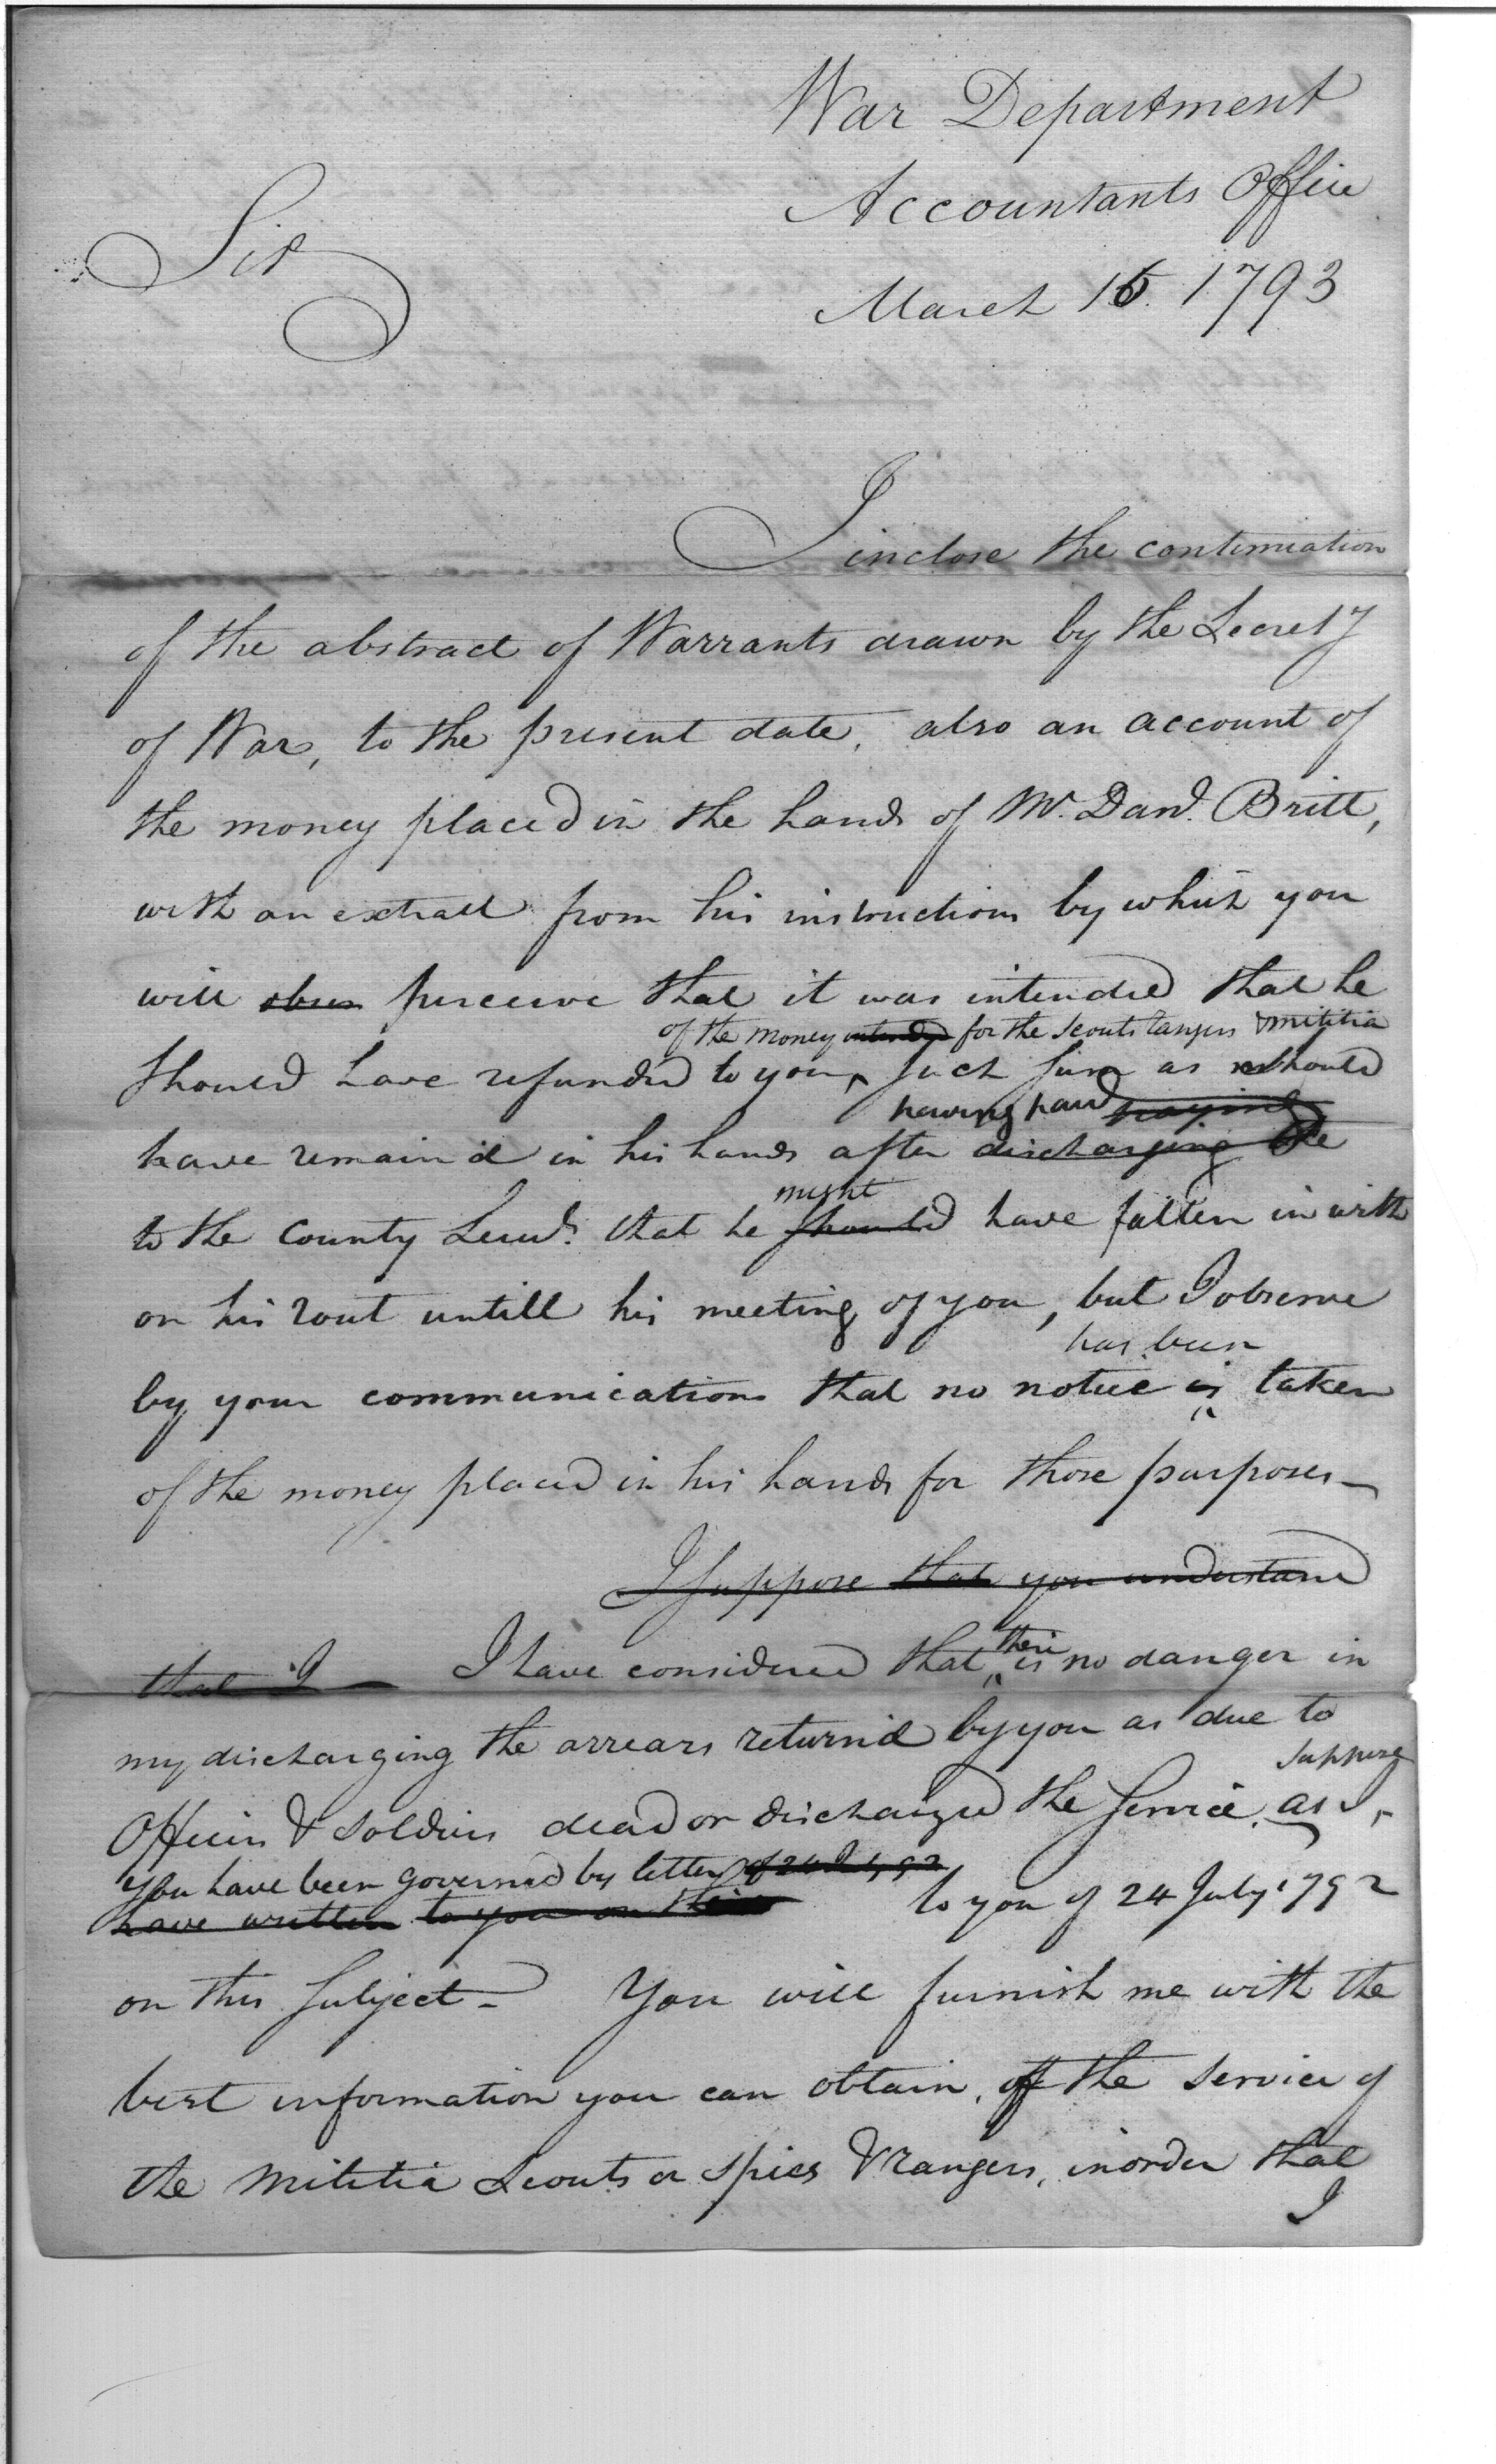 War Department
Accountants Office
Sir
March 16 1793
I inclose the continuation
of the abstract of Warrants drawn by the Secrety
of War, to the present date, also an account of
the money placed in the hands of Mr. Danl. Britt,
with an extract from his instructions by which you
will obser perceive that it was intended that he
of the money intended for the scouts rangers & militia
should have refunded to you, such sum as should
having paid paying
have remain'd in his hands after discharging the
might
to the County Lieuts. that he should have fallen in with
on his rout untill his meeting of you, but I observe
has been
by your communications that no notice is taken
of the money placed in his hands for those purposes—
I suppose that you understand
there
that I I have considered that is no danger in
my discharging the arrears return'd by you as due to
suppose
Officers & soldiers dead or discharged the service, as I,
you have been governed by letter of 24 July 92
have written to you on this to you of 24 July 1792
on this subject— You will furnish me with the
best information you can obtain, of the service of
the militia scouts or spies & rangers, in order that
I